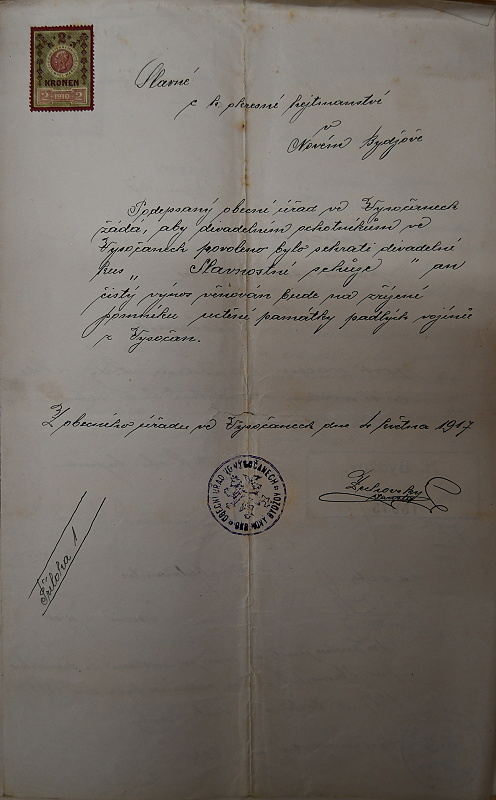 2
KRONEN
2 1910 2
Slavné
c. k. okresné hejtmanství
v
Novém Bydžově
Podepsaný obecní úřad ve Vysočanech
žádá, aby divadelním ochotníkům ve
Vysočanech povoleno bylo sehrati divadelní
kus „ Slavnostné schůze " an
čistý výnos věnován bude na zřízení
pomníku uctění památky padlých vojínů
z Vysočan.
Z obecního úřadu ve Vysočanech dne 4 května 1917
OBECNÍ ÚŘAD VE VYSOČANECH
Příloha 1